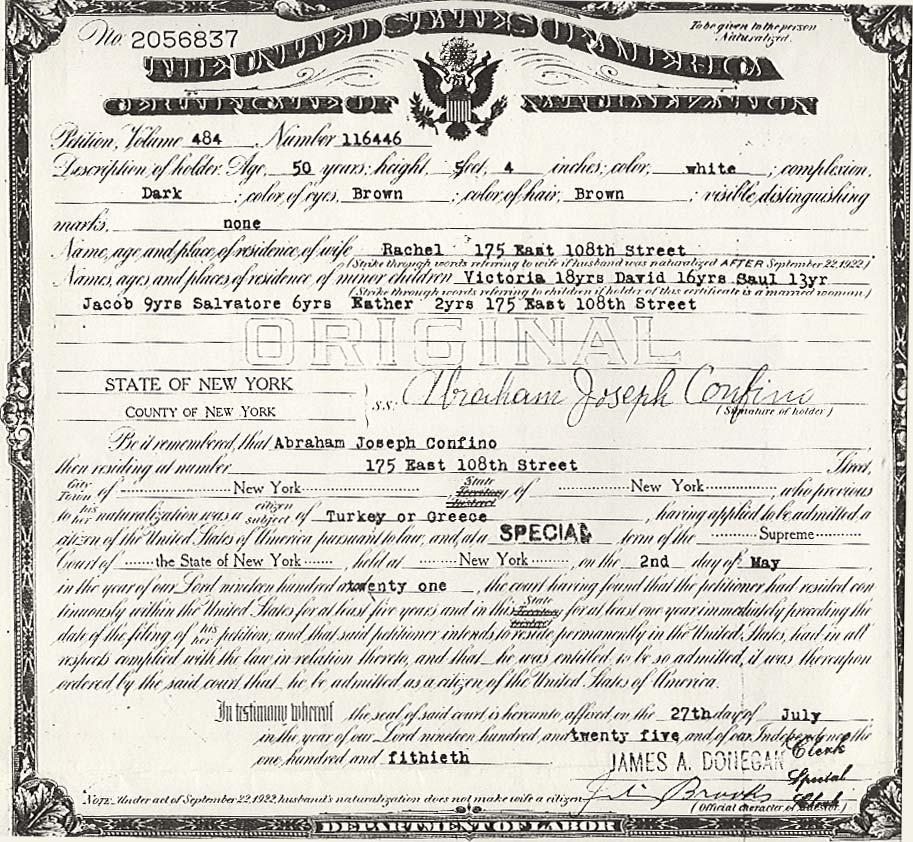 No. 2056837
To be given to the person Naturalized.
THE UNITED STATES OF AMERICA
CERTIFICATE OF NATURALIZATION
Petition, Volume 484, Number 116446
Description of holder. Age, 50 years; height, 5 feet, 4 inches; color, white ; complexion,
Dark ; color of eyes, Brown ; color of hair, Brown ; visible distinguishing
marks, none
Name, age and place of residence of wife Rachel 175 East 108th Street
(Strike through words referring to wife if husband was naturalized AFTER September 22, 1922.)
Names, ages and places of residence of minor children Victoria 18yrs David 16yrs Saul 13yr
(Strike through words referring to children if holder of this certificate is a married woman.)
Jacob 9yrs Salvatore 6yrs Esther 2yrs 175 East 108th Street
ORIGINAL
STATE OF NEW YORK
COUNTY OF NEW YORK
s.s: Abraham Joseph Confino
(Signature of holder)
Be it remembered, that Abraham Joseph Confino
then residing at number 175 East 108th Street Street,
City Town of New York State Territory District of New York, who previous
to his her naturalization was a citizen subject of Turkey or Greece, having applied to be admitted a
citizen of the United States of America pursuant to law, and, at a SPECIAL term of the Supreme
Court of the State of New York, held at New York, on the 2nd day of May
in the year of our Lord nineteen hundred twenty one, the court having found that the petitioner had resided con
tinuously within the United States for at least five years and in this State Territory District for at least one year immediately preceding the
date of the filing of his her petition, and that said petitioner intends to reside permanently in the United States, had in all
respects complied with the law in relation thereto, and that he was entitled to be so admitted, it was thereupon
ordered by the said court that he be admitted as a citizen of the United States of America.
In testimony whereof the seal of said court is hereunto affixed on the 27th day of July
in the year of our Lord nineteen hundred and twenty five, and of our Independence the
one hundred and fithieth
JAMES A. DONEGAN Clerk
Special
Clerk
Note: Under act of September 22, 1922, husband's naturalization does not make wife a citizen
(Official character of attestor.)
DEPARTMENT OF LABOR